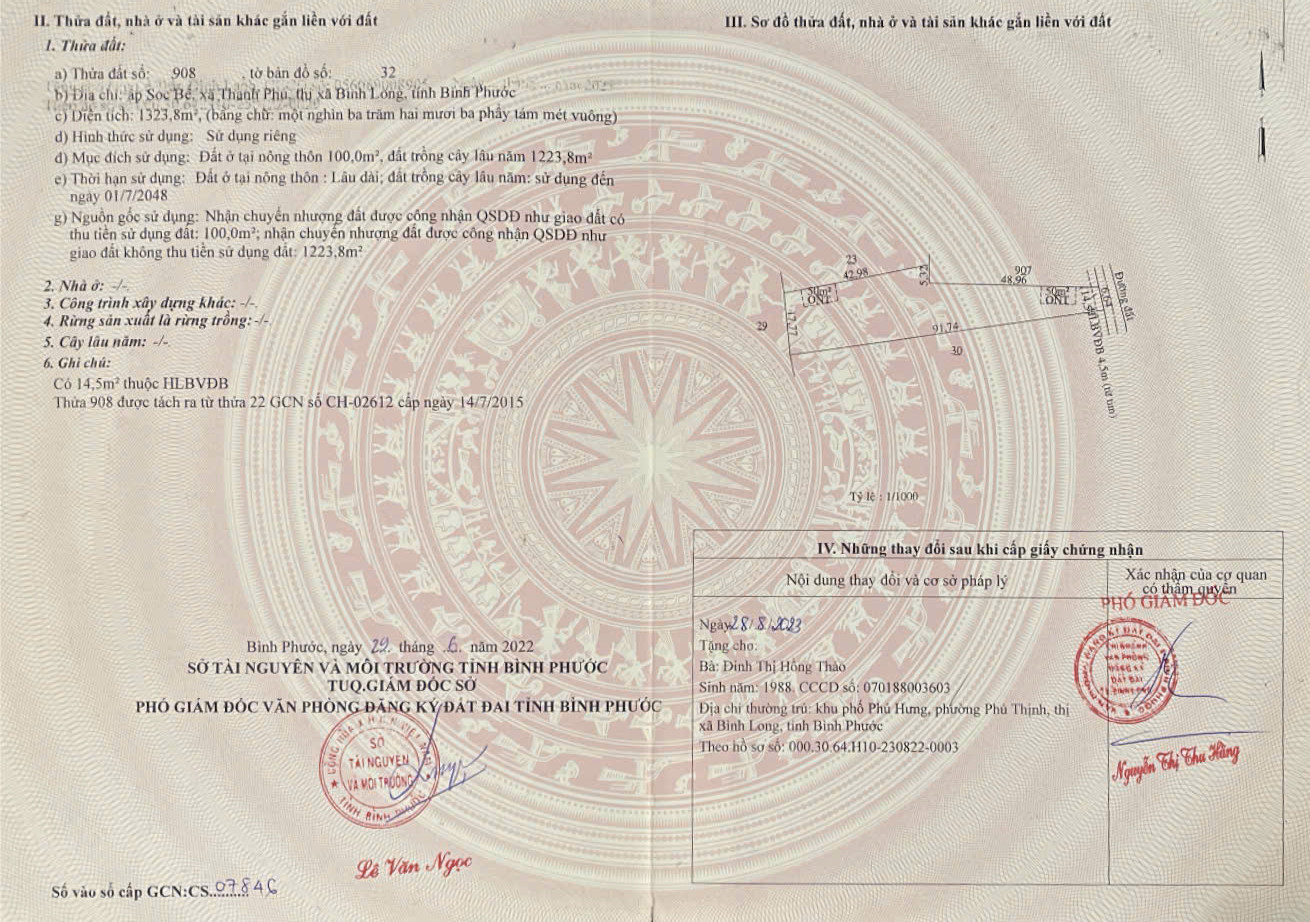 II. Thửa đất, nhà ở và tài sản khác gắn liền với đất
1. Thửa đất:
a) Thửa đất số: 908 , tờ bản đồ số: 32
b) Địa chỉ: ấp Sóc Bế, xã Thanh Phú, thị xã Bình Long, tỉnh Bình Phước
c) Diện tích: 1323,8m², (bằng chữ: một nghìn ba trăm hai mươi ba phẩy tám mét vuông)
d) Hình thức sử dụng: Sử dụng riêng
đ) Mục đích sử dụng: Đất ở tại nông thôn 100,0m², đất trồng cây lâu năm 1223,8m²
e) Thời hạn sử dụng: Đất ở tại nông thôn : Lâu dài; đất trồng cây lâu năm: sử dụng đến
ngày 01/7/2048
g) Nguồn gốc sử dụng: Nhận chuyển nhượng đất được công nhận QSDĐ như giao đất có
thu tiền sử dụng đất: 100,0m²; nhận chuyển nhượng đất được công nhận QSDĐ như
giao đất không thu tiền sử dụng đất: 1223,8m²
2. Nhà ở: -/-.
3. Công trình xây dựng khác: -/-.
4. Rừng sản xuất là rừng trồng:-/-.
5. Cây lâu năm: -/-.
6. Ghi chú:
Có 14,5m² thuộc HLBVĐB
Thửa 908 được tách ra từ thửa 22 GCN số CH-02612 cấp ngày 14/7/2015
Bình Phước, ngày 29. tháng .6. năm 2022
SỞ TÀI NGUYÊN VÀ MÔI TRƯỜNG TỈNH BÌNH PHƯỚC
TUQ.GIÁM ĐỐC SỞ
PHÓ GIÁM ĐỐC VĂN PHÒNG ĐĂNG KÝ ĐẤT ĐAI TỈNH BÌNH PHƯỚC
CỘNG HÒA X.H.C.N VIỆT NAM
SỞ
TÀI NGUYÊN
VÀ MÔI TRƯỜNG
TỈNH BÌNH PHƯỚC
Lê Văn Ngọc
Số vào sổ cấp GCN:CS.07846
III. Sơ đồ thửa đất, nhà ở và tài sản khác gắn liền với đất
23
42.98
5.32
907
48.96
50m²
ONT
50m²
ONT
29
17.77
91.74
30
6.64
Đường đất
HLBVĐB 4,5m (từ tim)
Tỷ lệ : 1/1000
IV. Những thay đổi sau khi cấp giấy chứng nhận
Nội dung thay đổi và cơ sở pháp lý
Xác nhận của cơ quan
có thẩm quyền
PHÓ GIÁM ĐỐC
Ngày 28/8/2023
Tặng cho:
Bà: Đinh Thị Hồng Thảo
Sinh năm: 1988. CCCD số: 070188003603
Địa chỉ thường trú: khu phố Phú Hưng, phường Phú Thịnh, thị
xã Bình Long, tỉnh Bình Phước
Theo hồ sơ số: 000.30.64.H10-230822-0003
CHI NHÁNH
VĂN PHÒNG
ĐĂNG KÝ
ĐẤT ĐAI
Nguyễn Thị Thu Hằng